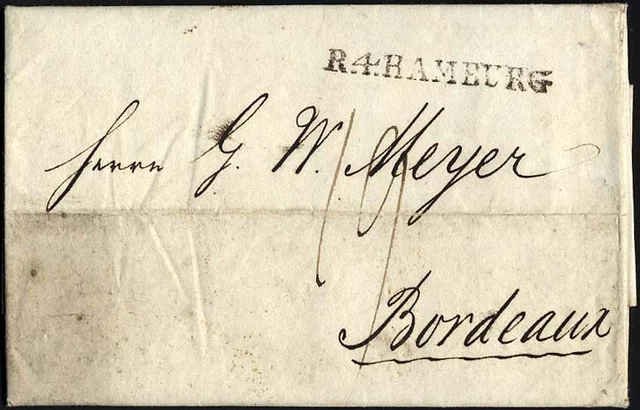 R.4.HAMBURG
Herrn G. W. Meyer
Bordeaux